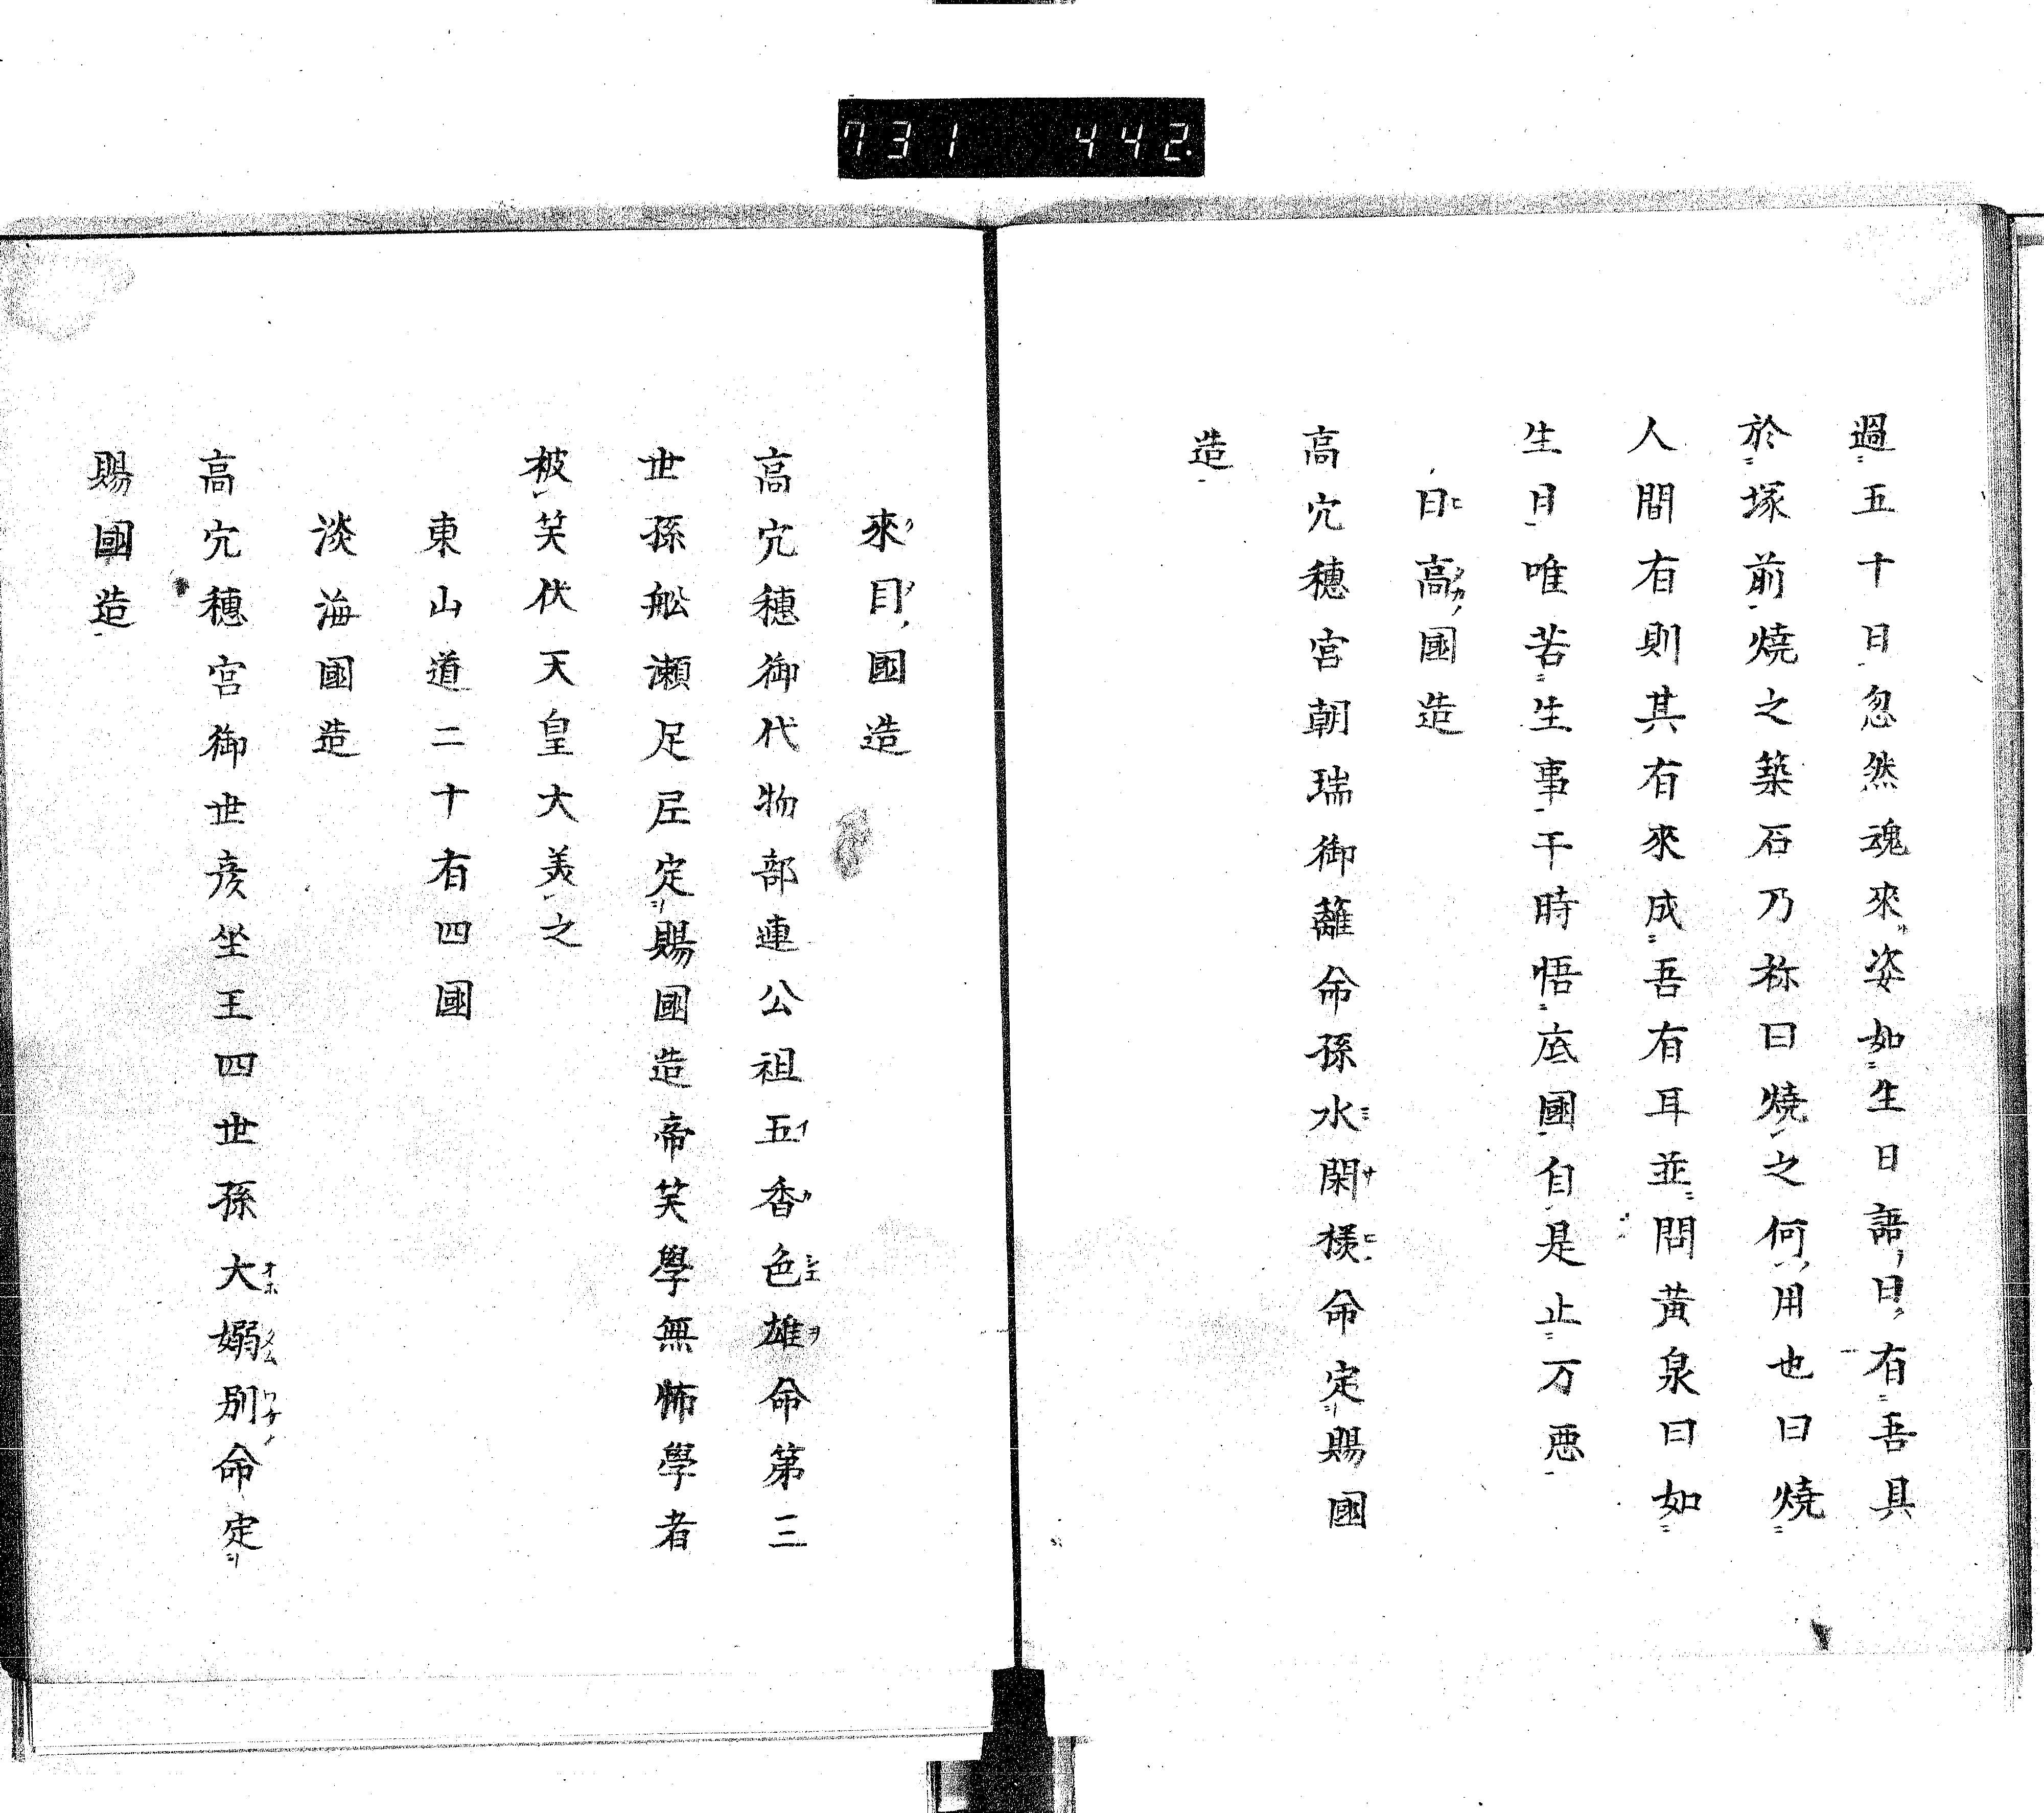 731 442
過五十日忽然魂來姿如生日語曰有吾具
於塚前燒之築石乃祢曰燒之何用也曰燒
人間有則其有來成吾有耳並問黃泉曰如
生日唯苦生事干時悟底國自是止万惡
日高國造
高穴穗宮朝瑞御籬命孫水閑樣命定賜國
造
來目國造
高穴穗御代物部連公祖五香色雄命第三
世孫舩瀬足尼定賜國造帝笑學無怖學者
被笑伏天皇大美之
東山道二十有四國
淡海國造
高穴穗宮御世彦坐王四世孫大嫋別命定
賜國造